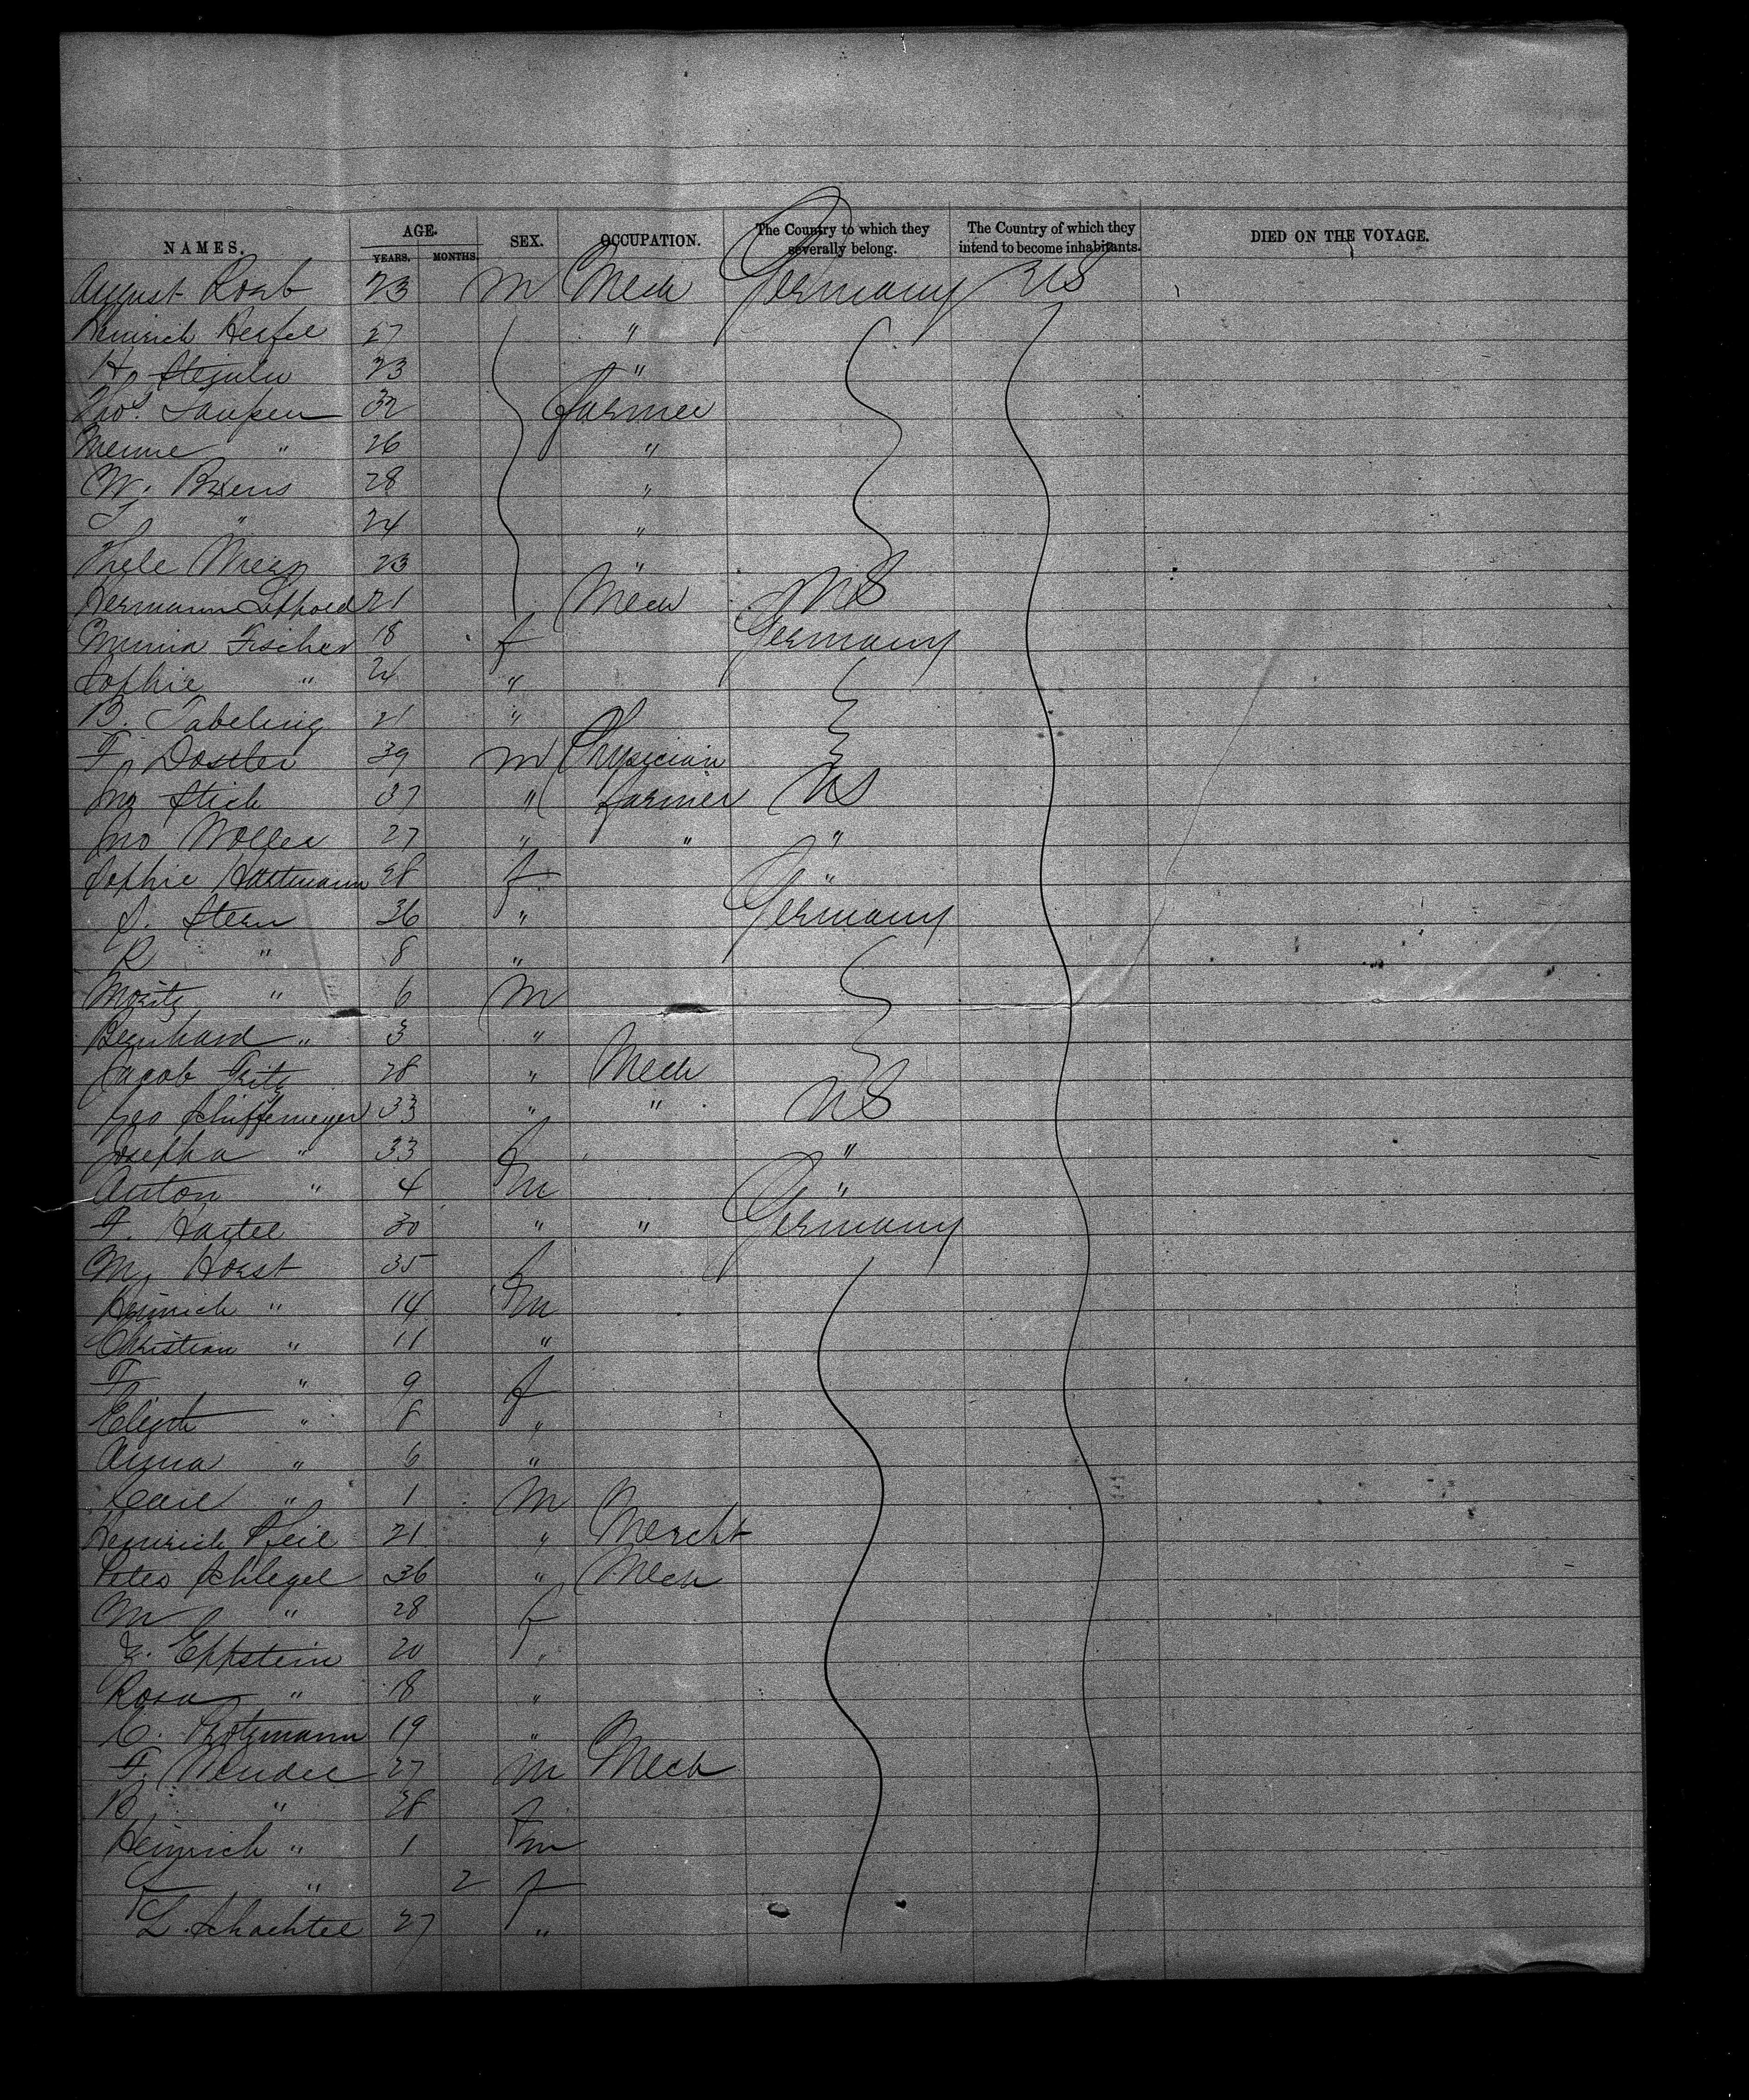 NAMES. AGE. YEARS. MONTHS. SEX. OCCUPATION. The Country to which they severally belong. The Country of which they intend to become inhabitants. DIED ON THE VOYAGE.
August 23 M Mech Germany US
Heinrich 27 "
H. 23 "
32 Farmer
" 26 "
W. 28 "
" 24 "
23 "
Hermann 21 Mech US
Fischer 18 f Germany
Sophie " 24 "
B. Tabeling 21 "
F. Dostler 39 M Physician
Jno Stich 37 " farmer US
Jno 27 " " "
Sophie Hartmann 28 f "
S. Stern 36 " Germany
R " 8 "
Moritz " 6 M
Bernhard " 3 "
Jacob 28 " Mech
Geo Schiffemeyer 33 " " US
Josepha " 33 f "
Anton " 4 M "
F. Hartel 30 " " Germany
M. Horst 35 f
Heinrich " 14 M
Christian " 11 "
F " 9 f
" 8 "
Anna " 6 "
Carl " 1 M
Heinrich Pfeil 21 " Mercht
Schlegel 36 " Mech
M " 28 f
E. Eppstein 20 "
Rosa " 18 "
C. 19 "
F. 27 M Mech
B. " 28 f
Heinrich " 1 M
" 2 f
L. Schachtel 27 "